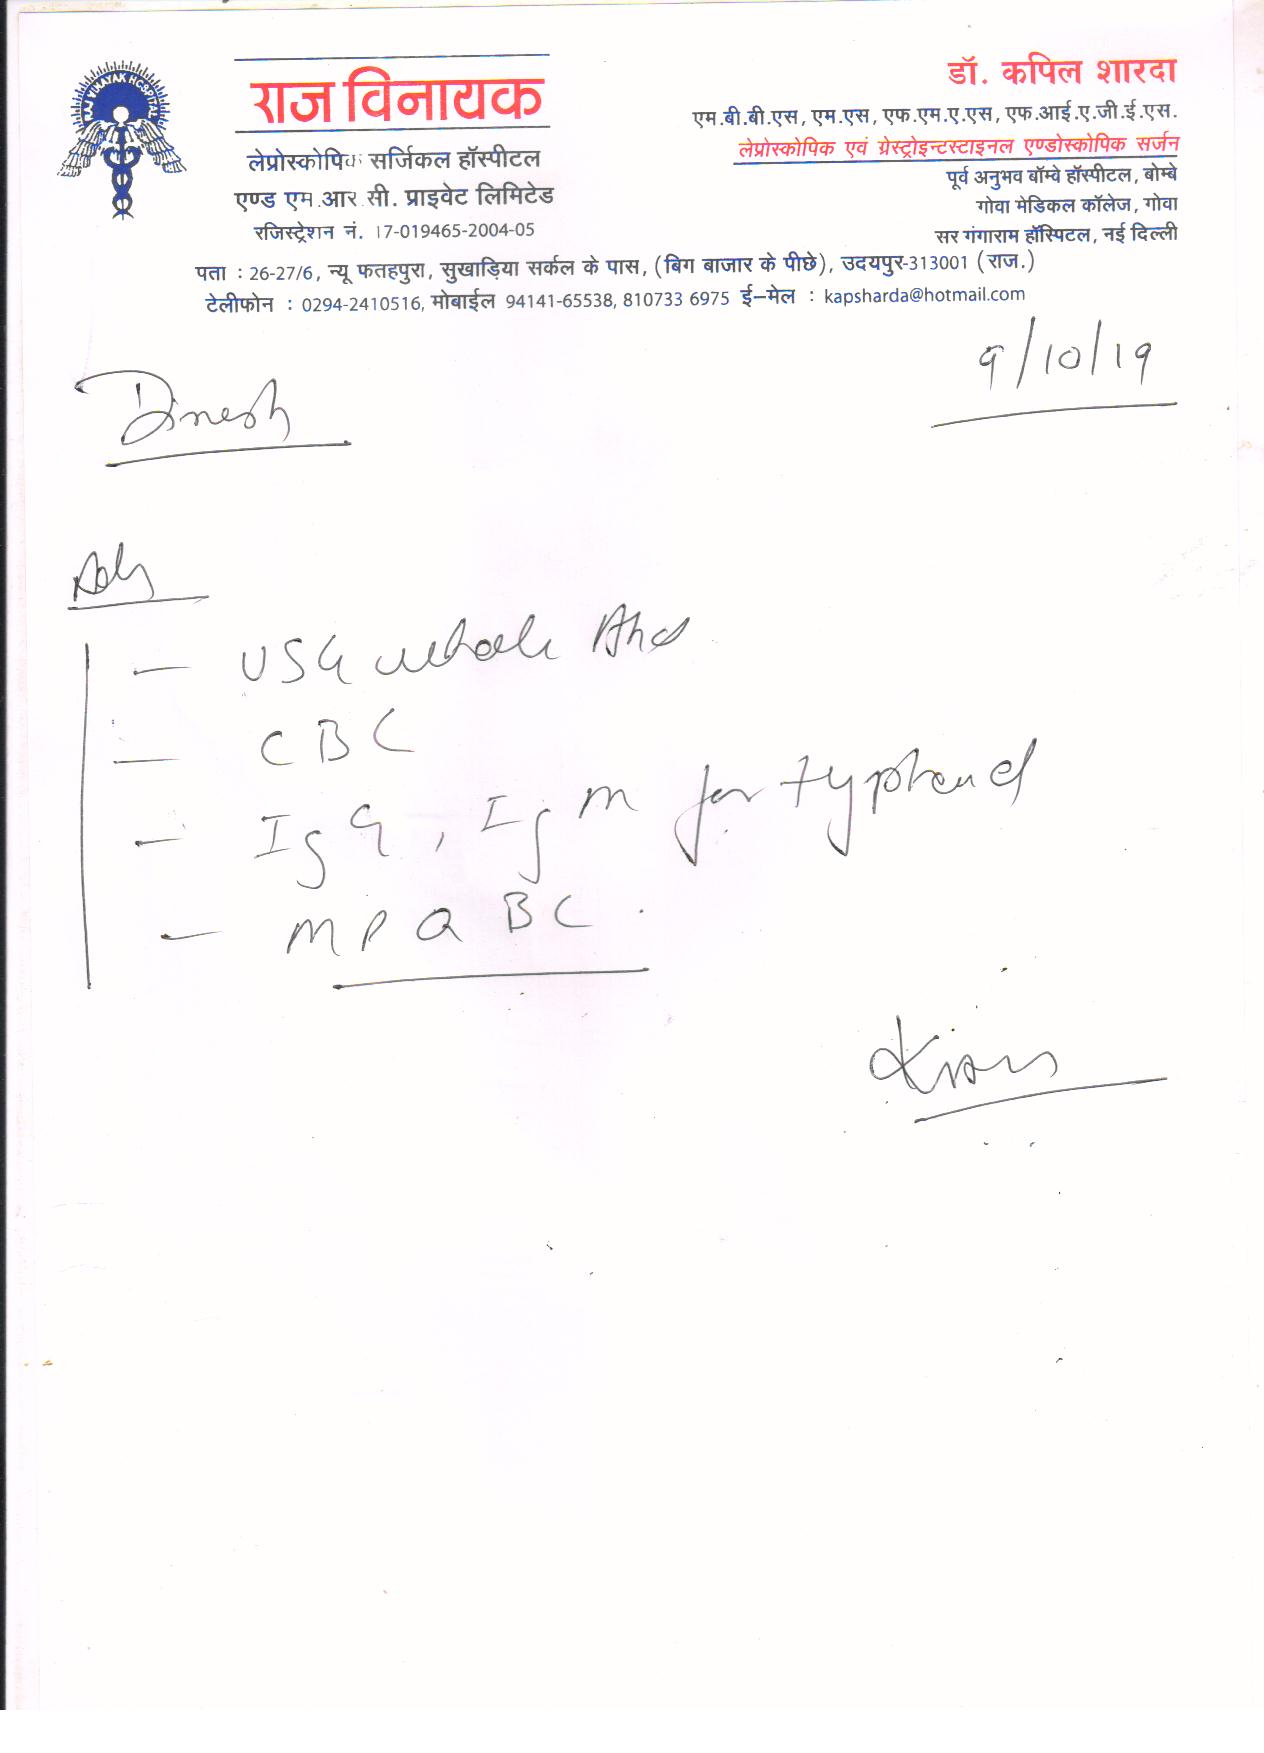 RAJ VINAYAK HOSPITAL
राज विनायक
लेप्रोस्कोपिक सर्जिकल हॉस्पीटल
एण्ड एम.आर.सी. प्राइवेट लिमिटेड
रजिस्ट्रेशन नं. 17-019465-2004-05
डॉ. कपिल शारदा
एम.बी.बी.एस, एम.एस, एफ.एम.ए.एस, एफ.आई.ए.जी.ई.एस.
लेप्रोस्कोपिक एवं ग्रेस्ट्रोइन्टस्टाइनल एण्डोस्कोपिक सर्जन
पूर्व अनुभव बॉम्बे हॉस्पीटल, बोम्बे
गोवा मेडिकल कॉलेज, गोवा
सर गंगाराम हॉस्पिटल, नई दिल्ली
पता : 26-27/6, न्यू फतहपुरा, सुखाड़िया सर्कल के पास, (बिग बाजार के पीछे), उदयपुर-313001 (राज.)
टेलीफोन : 0294-2410516, मोबाईल 94141-65538, 810733 6975 ई-मेल : kapsharda@hotmail.com
9/10/19
Dinesh
Adv
- USG whole Abd
- CBC
- IgG, IgM for typhoid
- MP QBC.